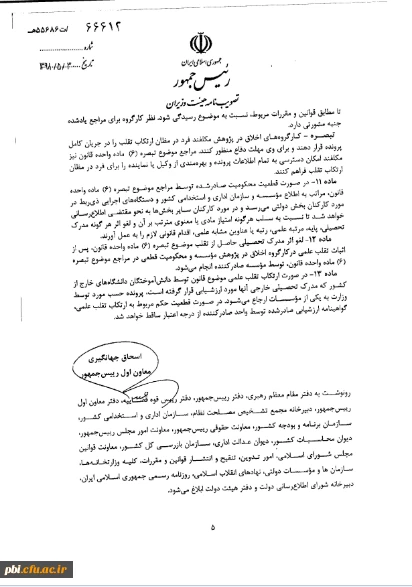 ۶۶۶۱۲ /ت۵۵۶۸۶هـ
شماره
تاریخ ۱۳۹۸/۰۵/۰۳
جمهوری اسلامی ایران
رئیس جمهور
تصویب نامه هیئت وزیران
تا مطابق قوانین و مقررات مربوط، نسبت به موضوع رسیدگی شود. نظر کارگروه برای مراجع یادشده
جنبه مشورتی دارد.
تبصره – کارگروه‌های اخلاق در پژوهش مکلفند فرد در مظان ارتکاب تقلب را در جریان کامل
پرونده قرار دهند و برای وی مهلت دفاع منظور کنند. مراجع موضوع تبصره (۶) ماده واحده قانون نیز
مکلفند امکان دسترسی به تمام اطلاعات پرونده و بهره‌مندی از وکیل یا نماینده را برای فرد در مظان
ارتکاب تقلب فراهم کنند.
ماده ۱۱– در صورت قطعیت محکومیت صادرشده توسط مراجع موضوع تبصره (۶) ماده واحده
قانون، مراتب به اطلاع مؤسسه و سازمان اداری و استخدامی کشور و دستگاه‌های اجرایی ذی‌ربط در
مورد کارکنان بخش دولتی می‌رسد و در مورد کارکنان سایر بخش‌ها به نحو مقتضی اطلاع‌رسانی
خواهد شد تا نسبت به سلب هرگونه امتیاز مادی یا معنوی مترتب بر آن و لغو اثر هر گونه مدرک
تحصیلی، پایه، مرتبه علمی، رتبه یا عناوین مشابه علمی، اقدام قانونی لازم را به عمل آورند.
ماده ۱۲– لغو اثر مدرک تحصیلی حاصل از تقلب موضوع تبصره (۶) ماده واحده قانون، پس از
اثبات تقلب علمی درکارگروه اخلاق در پژوهش مؤسسه و محکومیت قطعی در مراجع موضوع تبصره
(۶) ماده واحده قانون، توسط مؤسسه صادرکننده انجام می‌شود.
ماده ۱۳– در صورت ارتکاب تقلب علمی موضوع قانون توسط دانش‌آموختگان دانشگاه‌های خارج از
کشور که مدرک تحصیلی خارجی آنها مورد ارزشیابی قرار گرفته است، پرونده حسب مورد توسط
وزارت به یکی از مؤسسات ارجاع می‌شود. در صورت قطعیت حکم مربوط به ارتکاب تقلب علمی،
گواهینامه ارزشیابی صادرشده توسط واحد صادرکننده از درجه اعتبار ساقط خواهد شد.
اسحاق جهانگیری
معاون اول رییس‌جمهور
رونوشت به دفتر مقام معظم رهبری، دفتر رییس‌جمهور، دفتر رییس قوه قضاییه، دفتر معاون اول
رییس‌جمهور، دبیرخانه مجمع تشخیص مصلحت نظام، سازمان اداری و استخدامی کشور،
سازمان برنامه و بودجه کشور، معاونت حقوقی رییس‌جمهور، معاونت امور مجلس رییس‌جمهور،
دیوان محاسبات کشور، دیوان عدالت اداری، سازمان بازرسی کل کشور، معاونت قوانین
مجلس شورای اسلامی، امور تدوین، تنقیح و انتشار قوانین و مقررات، کلیه وزارتخانه‌ها،
سازمان ها و مؤسسات دولتی، نهادهای انقلاب اسلامی، روزنامه رسمی جمهوری اسلامی ایران،
دبیرخانه شورای اطلاع‌رسانی دولت و دفتر هیئت دولت ابلاغ می‌شود.
۵
pbi.cfu.ac.ir